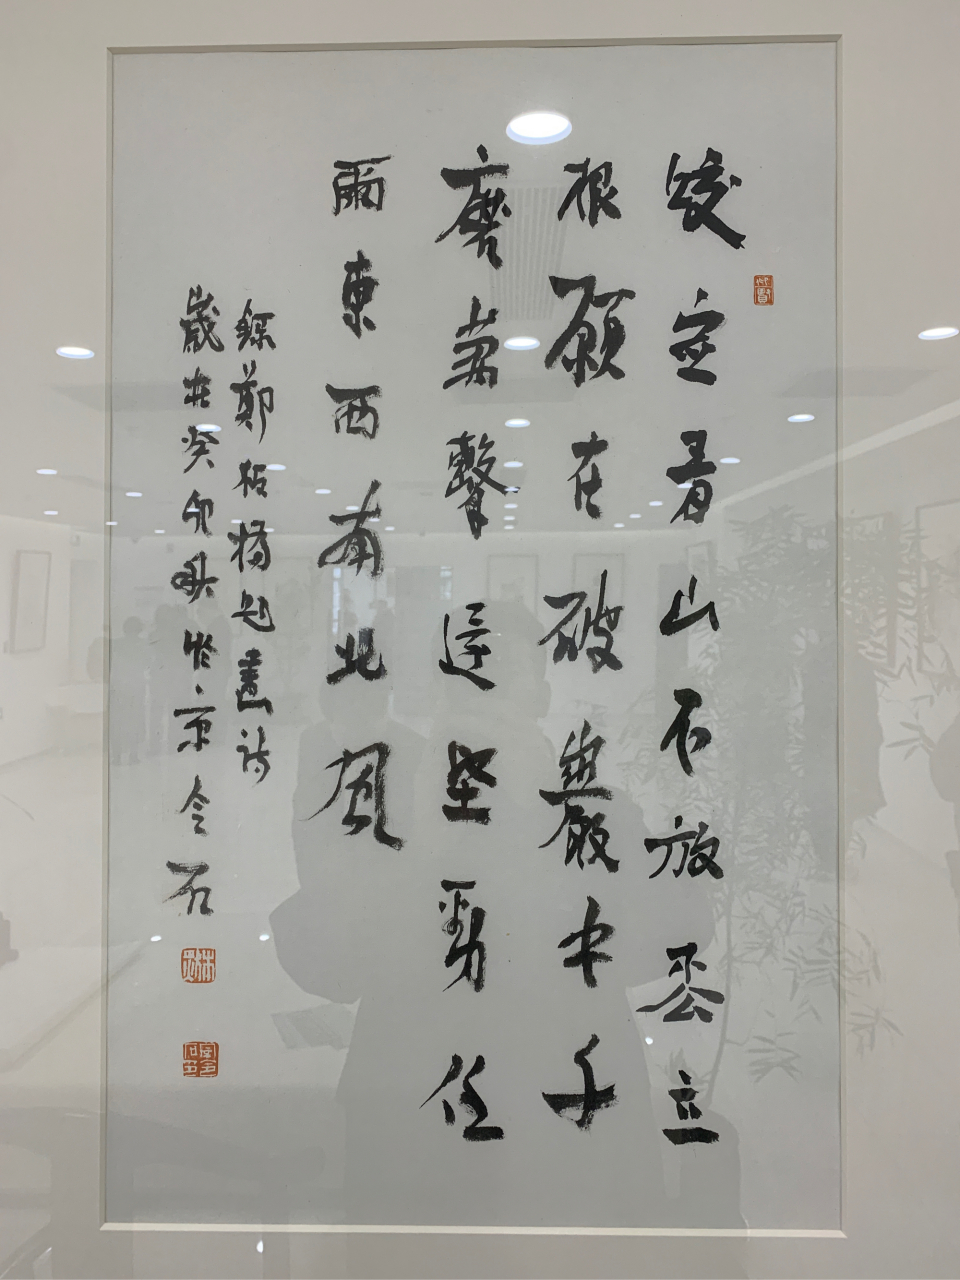 咬定青山不放枀立
根願在破巖中千
磨萬擊還堅勁任
爾東西南北風
錄鄭板橋題畫詩
歲在癸卯 於京 令石